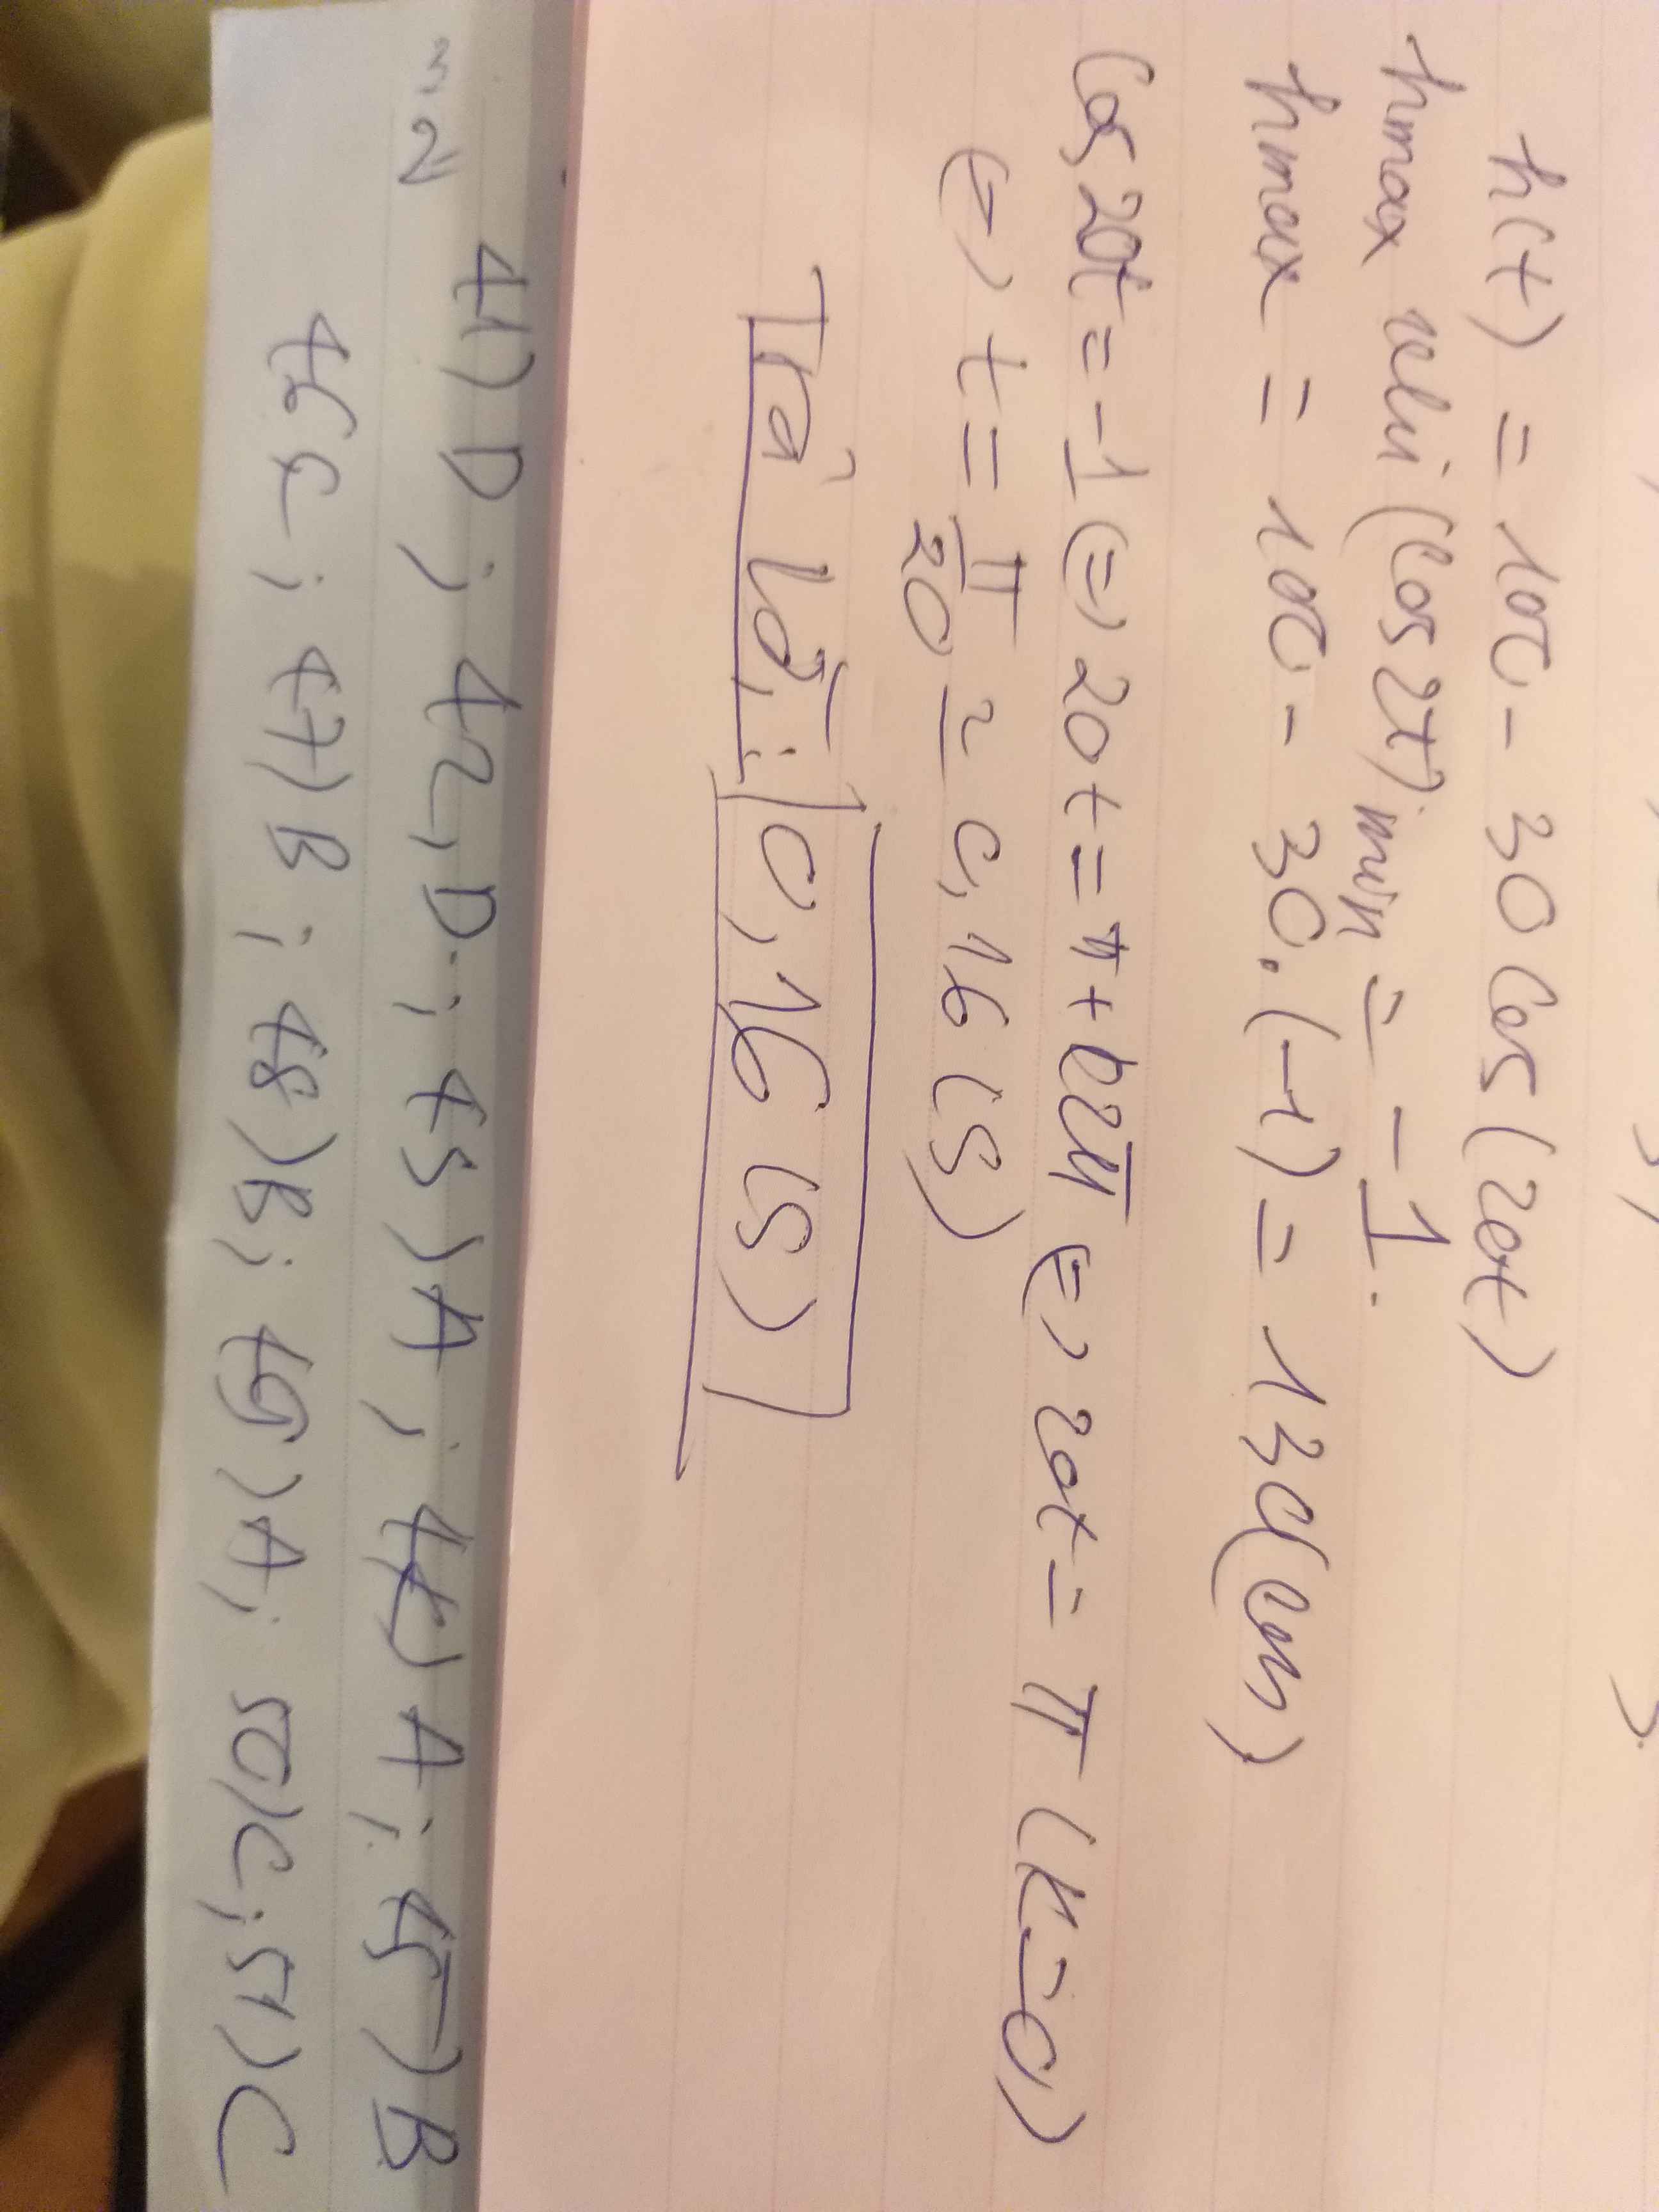 h(t) = 100 - 30 cos(20t)
hmax khi (cos 2t) min = -1.
hmax = 100 - 30.(-1) = 130(cm)
Cos 20t = -1 (=) 20t = π + k2π (=) 20t = π (k=0)
(=) t = π/20 ≈ 0,16 (s)
Trả lời: 0,16 (s)
41) D ; 42, D ; 43) A ; 44) A ; 45) B
46 C ; 47) B ; 48) B ; 49) A ; 50) C ; 51) C